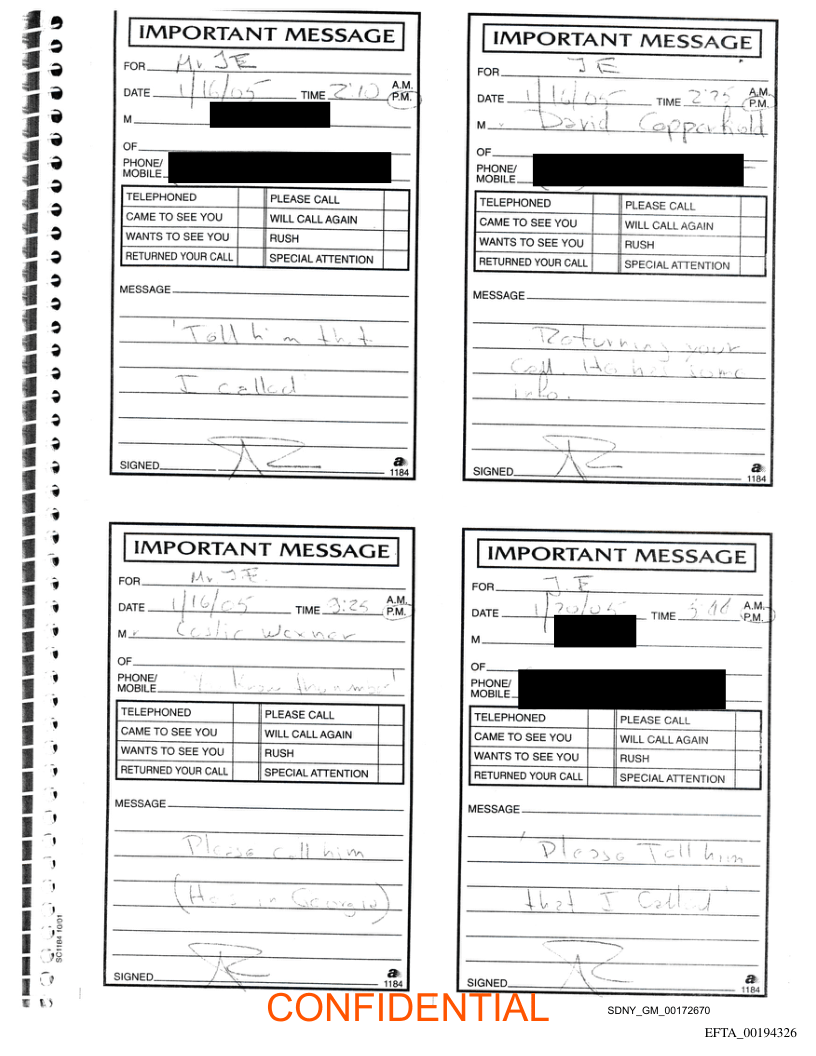 IMPORTANT MESSAGE
FOR Mr JE
DATE 1/16/05 TIME 2:10 A.M.
P.M.
M
OF
PHONE/
MOBILE
TELEPHONED PLEASE CALL
CAME TO SEE YOU WILL CALL AGAIN
WANTS TO SEE YOU RUSH
RETURNED YOUR CALL SPECIAL ATTENTION
MESSAGE
"Tell him that
I called
SIGNED
a
1184
IMPORTANT MESSAGE
FOR JE
DATE 1/16/05 TIME 2:25 A.M.
P.M.
Mr David Copperfield
OF
PHONE/
MOBILE
TELEPHONED PLEASE CALL
CAME TO SEE YOU WILL CALL AGAIN
WANTS TO SEE YOU RUSH
RETURNED YOUR CALL SPECIAL ATTENTION
MESSAGE
Returning your
Call. He has some
info.
SIGNED
a
1184
IMPORTANT MESSAGE
FOR Mr J.E.
DATE 1/16/05 TIME 9:25 A.M.
P.M.
Mr Leslie Wexner
OF
PHONE/
MOBILE
TELEPHONED PLEASE CALL
CAME TO SEE YOU WILL CALL AGAIN
WANTS TO SEE YOU RUSH
RETURNED YOUR CALL SPECIAL ATTENTION
MESSAGE
Please call him
(He is in Georgia)
SIGNED
a
1184
IMPORTANT MESSAGE
FOR J.E
DATE 1/20/05 TIME A.M.
P.M.
M
OF
PHONE/
MOBILE
TELEPHONED PLEASE CALL
CAME TO SEE YOU WILL CALL AGAIN
WANTS TO SEE YOU RUSH
RETURNED YOUR CALL SPECIAL ATTENTION
MESSAGE
"Please Tell him
that I Called"
SIGNED
a
1184
SC1184 10/01
CONFIDENTIAL
SDNY_GM_00172670
EFTA_00194326